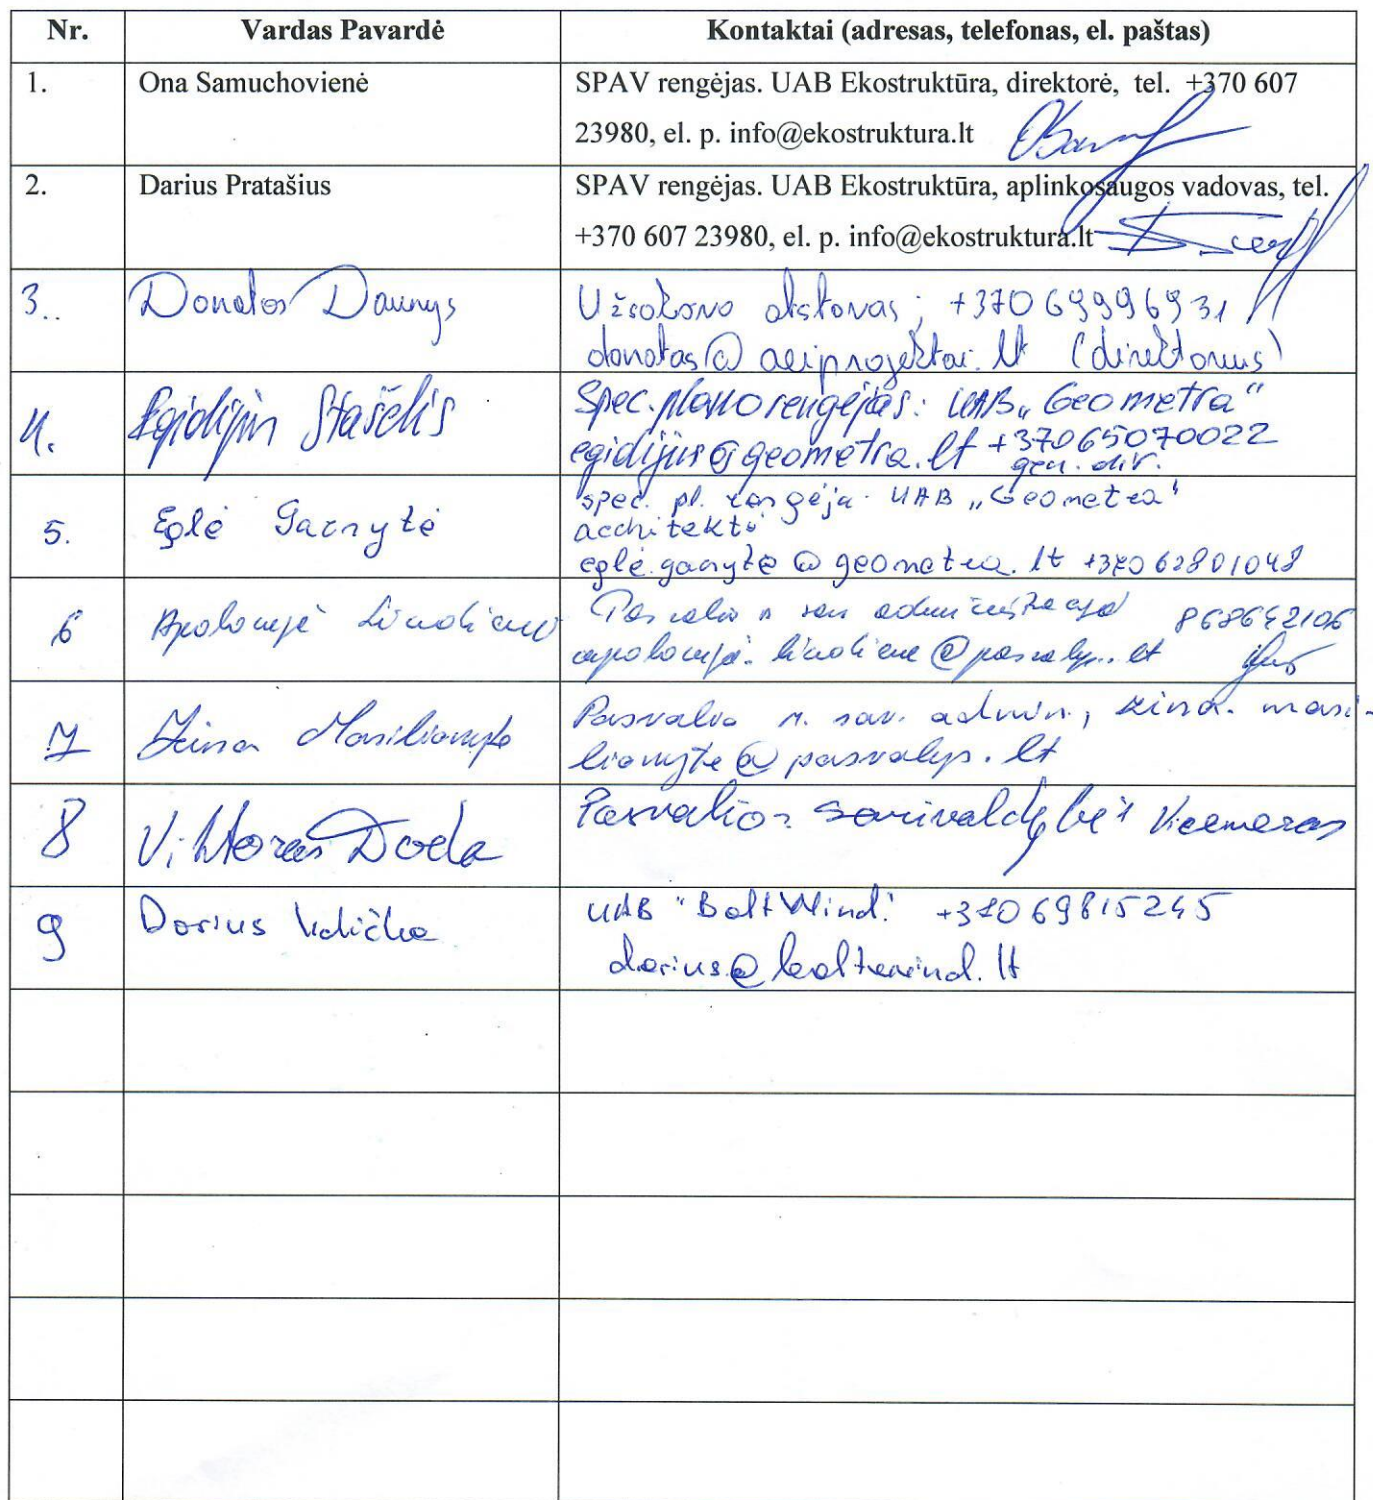 Nr. Vardas Pavardė Kontaktai (adresas, telefonas, el. paštas)
1. Ona Samuchovienė SPAV rengėjas. UAB Ekostruktūra, direktorė, tel. +370 607
23980, el. p. info@ekostruktura.lt
2. Darius Pratašius SPAV rengėjas. UAB Ekostruktūra, aplinkosaugos vadovas, tel.
+370 607 23980, el. p. info@ekostruktura.lt
3.. Donatas Daunys Užsakovo atstovas; +370 69996931
donatas@aeiprojektai.lt (direktorius)
4. Egidijus Stašelis Spec. plano rengėjas: UAB „Geometra“
egidijus@geometra.lt +37065070022
gen. dir.
5. Eglė Garnytė spec. pl. rengėja UAB „Geometra“
architektė
egle.garnyte@geometra.lt +370 62801048
6 Apolonija
868642106
@pasvalys.lt
7 Pasvalio r. sav. admin.,
lionyte@pasvalys.lt
8 Viktoras Doda Pasvalio savivaldybės Vicemeras
9 Darius UAB "BaltWind" +370 69815245
darius@baltwind.lt